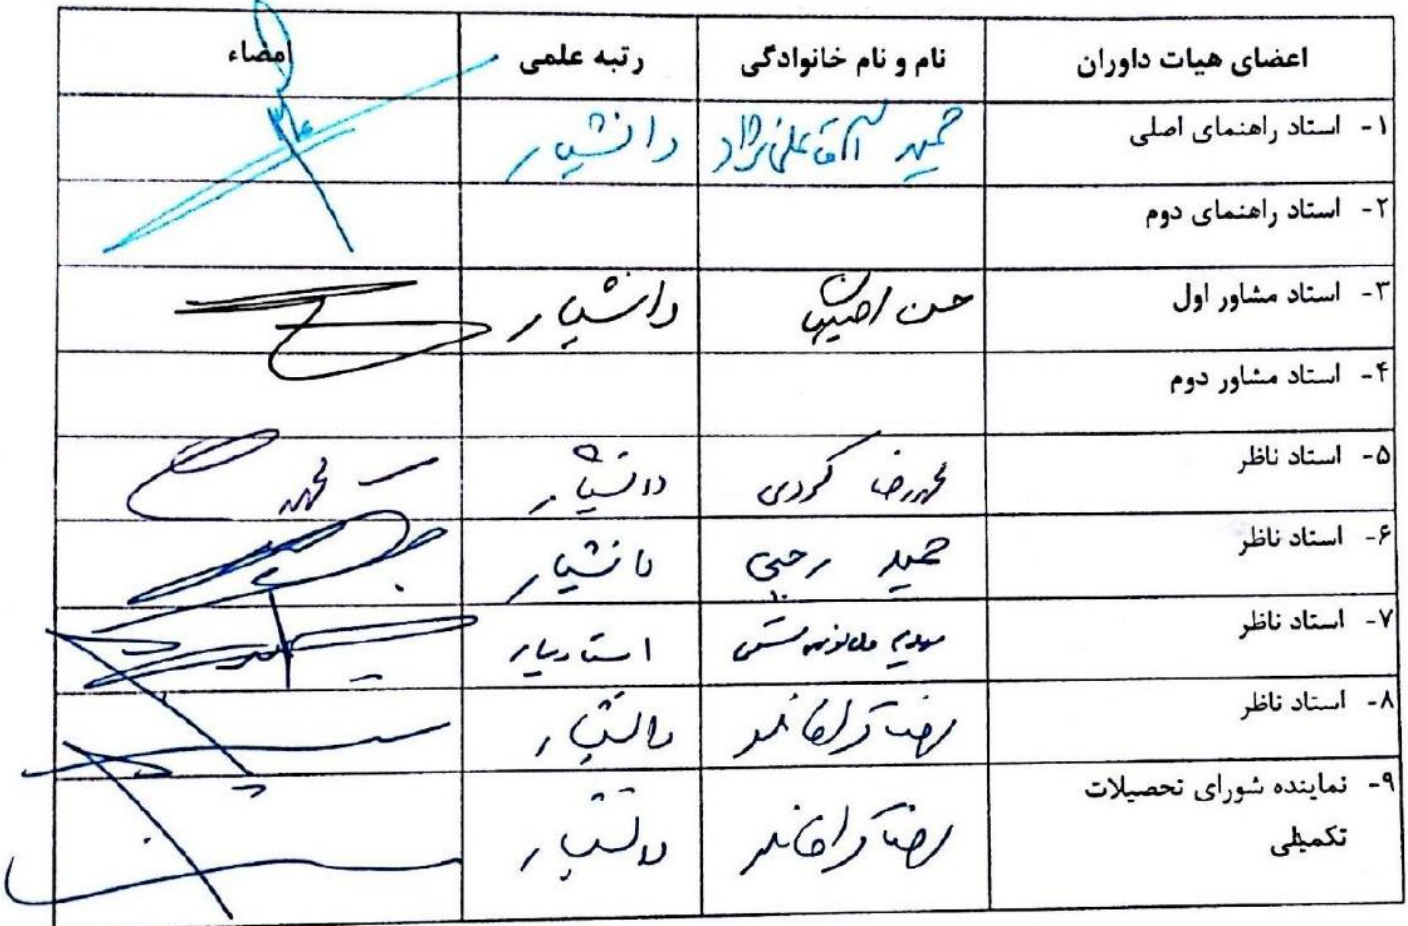 اعضای هیات داوران نام و نام خانوادگی رتبه علمی امضاء
۱- استاد راهنمای اصلی حمید آقاعلی‌نژاد دانشیار
۲- استاد راهنمای دوم
۳- استاد مشاور اول حسن دانشیار
۴- استاد مشاور دوم
۵- استاد ناظر محمدرضا کردی دانشیار
۶- استاد ناظر حمید رجبی دانشیار
۷- استاد ناظر استادیار
۸- استاد ناظر رضا قراخانلو دانشیار
۹- نماینده شورای تحصیلات رضا قراخانلو دانشیار
تکمیلی